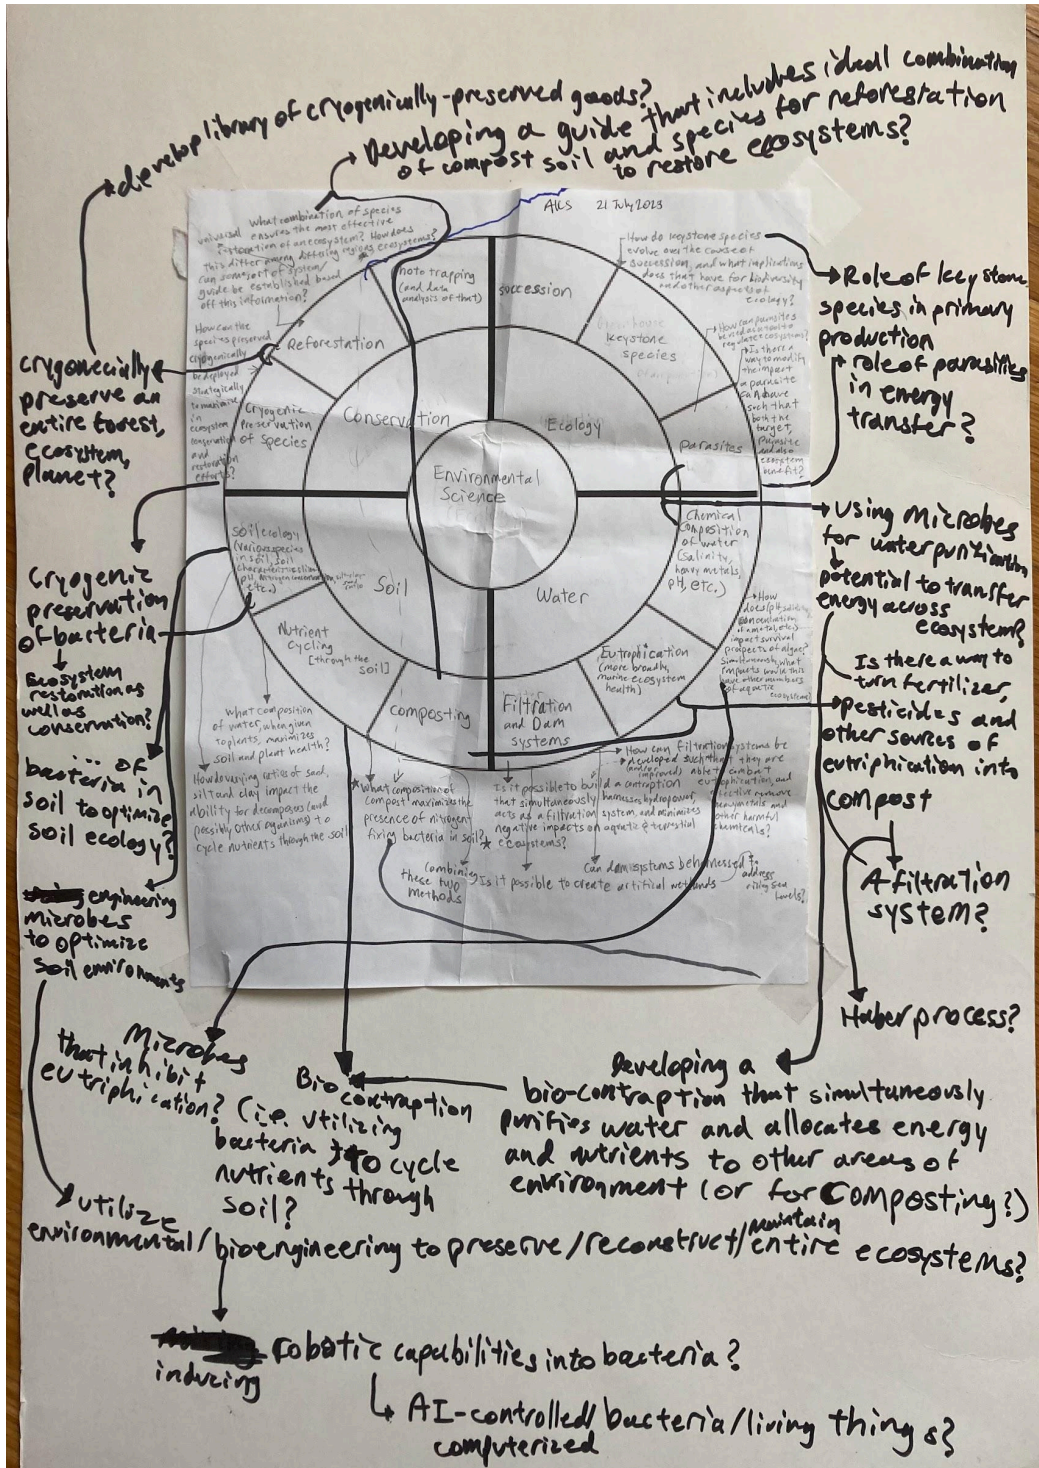 develop library of cryogenically-preserved goods?
Developing a guide that includes ideal combination
of compost soil and species for reforestation
to restore ecosystems?
AKS 21 July 2023
What combination of species
universal ensures the most effective
restoration of an ecosystem? How does
this differ among differing regions, ecosystems?
can some sort of system/
guide be established based
off this information?
How can the
species preserved
cryogenically
be deployed
strategically
to maximize
in
ecosystem
conservation
and
restoration
efforts?
Reforestation
Cryogenic
preservation
of species
Photo trapping
(and data
analysis of that)
succession
How do keystone species
evolve over the course of
succession, and what implications
does that have for biodiversity
and other aspects of
ecology?
keystone
species
How can parasites
be used as a tool to
regulate ecosystems?
Is there a
way to modify
the impact
a parasite
can have
such that
both the
target,
parasite
and also
ecosystem
benefit?
Parasites
Conservation
Ecology
Environmental
Science
Soil
Water
soil ecology
(various species
in soil, soil
characteristics like
pH, nitrogen concentration, silt/clay sand ratio
etc.)
Nutrient
Cycling
[through the
soil]
composting
Filtration
and Dam
systems
Eutrophication
(more broadly,
marine ecosystem
health)
Chemical
composition
of water
(salinity,
heavy metals,
pH, etc.)
How
does (pH, salinity,
concentration
of a metal, etc.)
impact survival
prospects of algae?
Simultaneously, what
impacts would this
have other members
of aquatic
ecosystems?
What composition
of water, when given
to plants, maximizes
soil and plant health?
How do varying ratios of sand,
silt and clay impact the
ability for decomposers (and
possibly other organisms) to
cycle nutrients through the soil
What composition of
compost maximizes the
presence of nitrogen
fixing bacteria in soil?
Is it possible to build a contraption
that simultaneously harnesses hydropower,
acts as a filtration system, and minimizes
negative impacts on aquatic & terrestrial
ecosystems?
How can filtration systems be
developed such that they are
(and/or improved) able to combat
eutrophication, and
effective remove
heavy metals and
other harmful
chemicals?
combining
these two
methods
Is it possible to create artifical wetlands
Can dam systems be harnessed to
address
rising sea
levels?
Role of keystone
species in primary
production
role of parasities
in energy
transfer?
Using microbes
for water purification
potential to transfer
energy across
ecosystem?
Is there a way to
turn fertilizer,
pesticides and
other sources of
eutriphication into
compost
A filtration
system?
Haber process?
cryogonecially
preserve an
entire forest,
ecosystem,
planet?
Cryogenic
preservation
of bacteria
Ecosystem
restoration as
well as
conservation?
... of
bacteria in
soil to optimize
soil ecology?
engineering
microbes
to optimize
soil environments
Microbes
that inhibit
eutriphication?
Bio
contraption
(i.e. utilizing
bacteria to cycle
nutrients through
soil?
Developing a
bio-contraption that simultaneously
purifies water and allocates energy
and nutrients to other areas of
environment (or for composting?)
utilize
environmental/bioengineering to preserve/reconstruct/maintain entire ecosystems?
inducing robotic capabilities into bacteria?
AI-controlled/bacteria/living things?
computerized